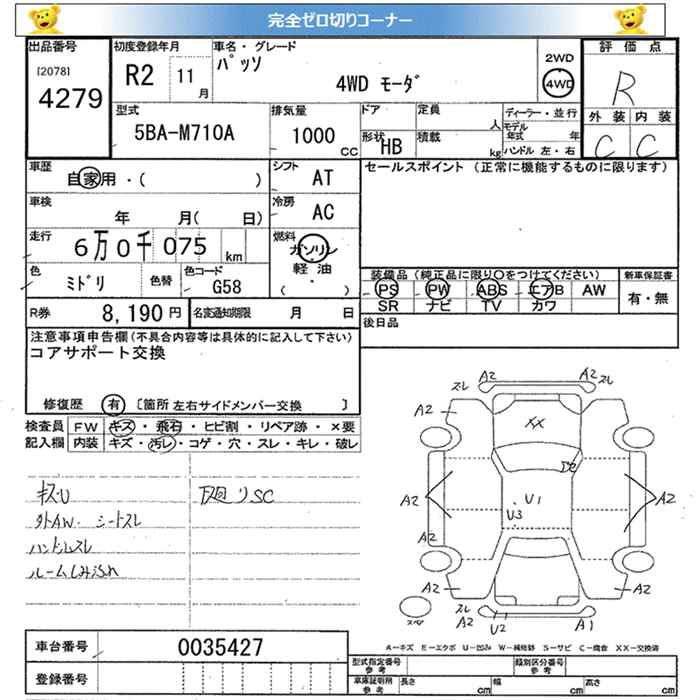 完全ゼロ切りコーナー
出品番号 [2078] 4279
初度登録年月 R2 11月
車名・グレード パッソ 4WD モーダ
2WD 4WD
評価点 R
外装 内装
C C
型式 5BA-M710A
排気量 1000 CC
ドア 定員 人
形状 HB 積載 kg
ディーラー・並行
モデル年式 年
ハンドル 左・右
車歴 自家用・( )
シフト AT
車検 年 月( 日)
冷房 AC
走行 6万0千075 km
燃料 ガソリン 軽油 ( )
色 ミドリ 色替 色コード G58
セールスポイント (正常に機能するものに限ります)
装備品 (純正品に限り○をつけてください)
PS PW ABS エアB AW
SR ナビ TV カワ
新車保証書 有・無
R券 8,190円 名変通知期限 月 日
後日品
注意事項申告欄(不具合内容等は具体的に記入して下さい)
コアサポート交換
修復歴 有 [箇所 左右サイドメンバー交換 ]
検査員記入欄
FW キズ・飛石・ヒビ割・リペア跡・×要
内装 キズ・汚レ・コゲ・穴・スレ・キレ・破レ
キズU 下廻りSC
外AW. シートスレ
ハンドルスレ
ルームしみ汚れ
スレ A2 A2 スレ
A2 A2
XX
U1
U3
A2 A2
A2
A2 A2
スレ A2 U2 A1
A-キズ E-エクボ U-凹み W-補修跡 S-サビ C-腐食 XX-交換済
車台番号 0035427
登録番号
型式指定番号 参考 類別区分番号 参考
車庫証明用 参考 長さ cm 幅 cm 高さ cm